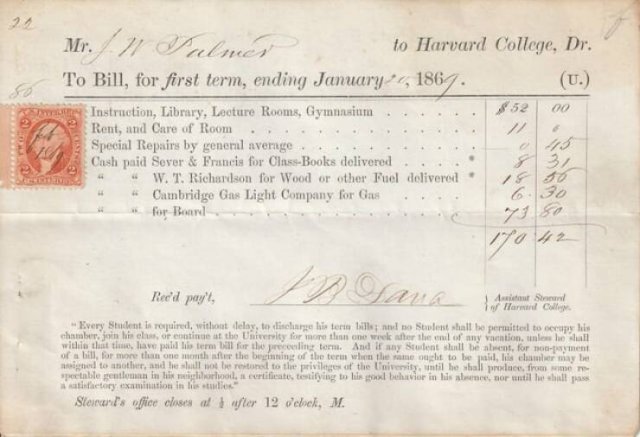 22
Mr. J W Palmer to Harvard College, Dr.
86
To Bill, for first term, ending January 20, 1869. (U.)
Instruction, Library, Lecture Rooms, Gymnasium . . . . . . $52 00
Rent, and Care of Room . . . . . . . . . . 11 0
Special Repairs by general average . . . . . . . . 0 45
Cash paid Sever & Francis for Class-Books delivered . . . . * 8 31
“ “ W. T. Richardson for Wood or other Fuel delivered * 18 56
“ “ Cambridge Gas Light Company for Gas . . . . . 6 30
“ “ for Board . . . . . . . . . . 73 80
170 42
Rec'd pay't, J B Dana } Assistant Steward
} of Harvard College.
“Every Student is required, without delay, to discharge his term bills; and no Student shall be permitted to occupy his
chamber, join his class, or continue at the University for more than one week after the end of any vacation, unless he shall
within that time, have paid his term bill for the preceeding term. And if any Student shall be absent, for non-payment
of a bill, for more than one month after the beginning of the term when the same ought to be paid, his chamber may be
assigned to another, and he shall not be restored to the privileges of the University, until he shall produce, from some re-
spectable gentleman in his neighborhood, a certificate, testifying to his good behavior in his absence, nor until he shall pass
a satisfactory examination in his studies.”
Steward's office closes at ½ after 12 o'clock, M.